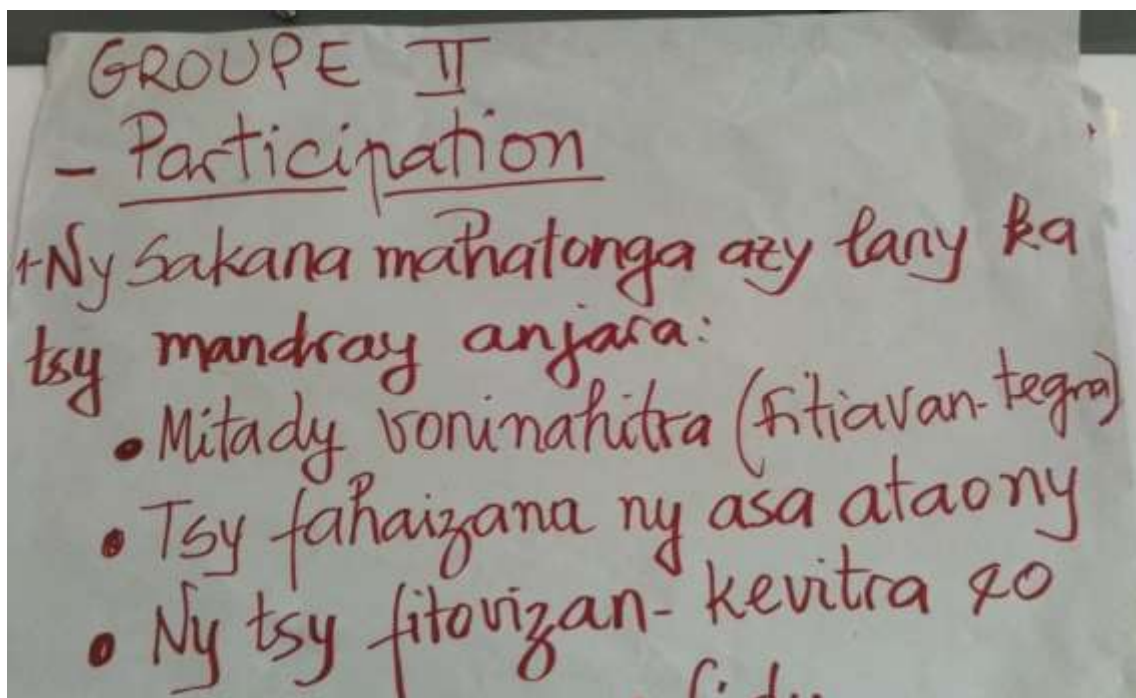 GROUPE II
- Participation
+Ny sakana mahatonga azy lany ka
tsy mandray anjara:
• Mitady voninahitra (fitiavan-tegna)
• Tsy fahaizana ny asa ataony
• Ny tsy fitovizan-kevitra eo